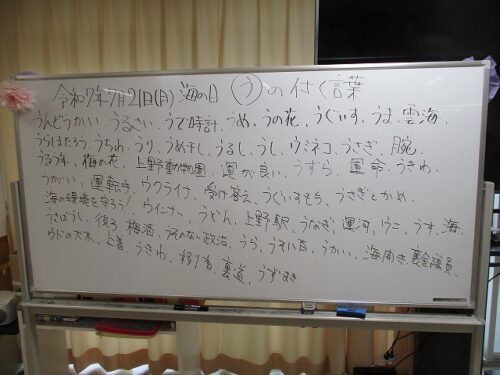 令和7年7月21日(月) 海の日 ⓤの付く言葉
うんどうかい、うるさい、うで時計、うめ、うの花、うぐいす、うま、雲海、
うらしまたろう、うちわ、うり、うめぼし、うるし、うし、ウミネコ、うさぎ、腕、
うるう年、梅の花、上野動物園、運が良い、うすら、運命、うきわ、
うがい、運転手、ウクライナ、受け答え、うぐいすもち、うさぎとかめ、
海の環境を守ろう!ウインナー、うどん、上野駅、うなぎ、運河、ウニ、うす、海、
うさばらし、後ろ、梅酒、うそのない政治、うら、うそい百、うかい、海開き、裏金議員、
ウドの大木、上着、うきわ、移り香、裏道、うずまき